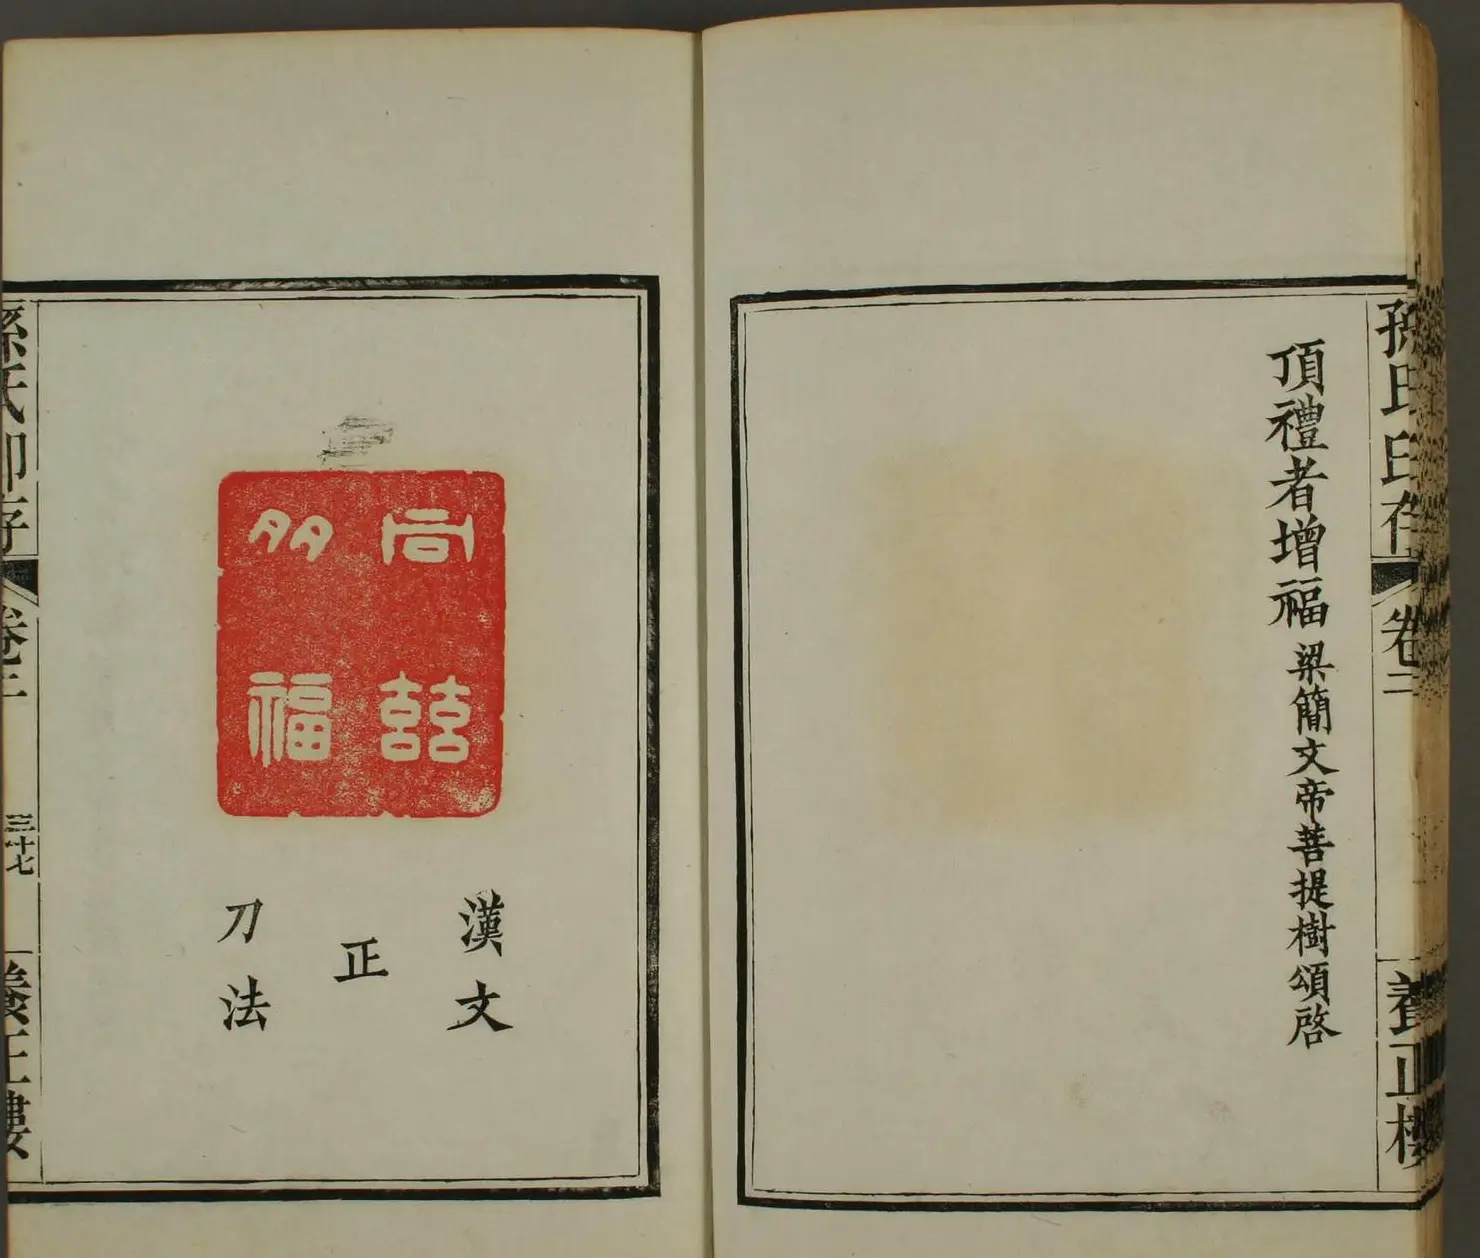 孫氏印存 卷二 養正樓
頂禮者增福 梁簡文帝菩提樹頌啓
喆
多福
漢文
正
刀法
孫氏印存 卷二 三十七 養正樓